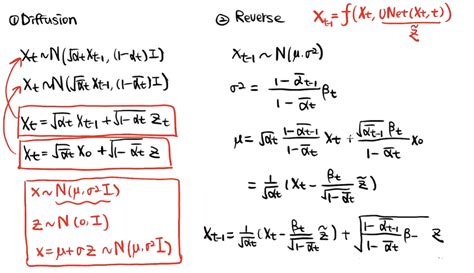 ① Diffusion
Xt ~ N(√αt Xt-1, (1-αt)I)
Xt ~ N(√ᾱt Xt-1, (1-ᾱt)I)
Xt = √αt Xt-1 + √1-αt Zt
Xt = √ᾱt X0 + √1-ᾱt Z
X ~ N(μ, σ²I)
Z ~ N(0, I)
X = μ + σZ ~ N(μ, σ²I)
② Reverse
Xt-1 = f(Xt, UNet(Xt, t))
Z̃
Xt-1 ~ N(μ, σ²)
σ² = (1-ᾱt-1)/(1-ᾱt) βt
μ = √αt (1-ᾱt-1)/(1-ᾱt) Xt + (√ᾱt-1 βt)/(1-ᾱt) X0
= 1/√αt (Xt - βt/√1-ᾱt Z̃)
Xt-1 = 1/√αt (Xt - βt/√1-ᾱt Z̃) + √((1-ᾱt-1)/(1-ᾱt) β-) Z